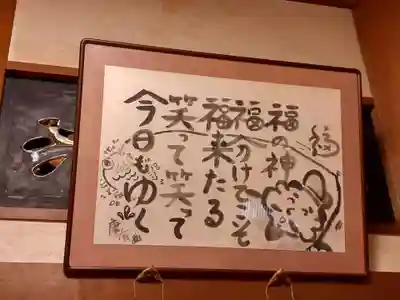 福
福の神
福分けてこそ
福来たる
笑って笑って
今日もゆく